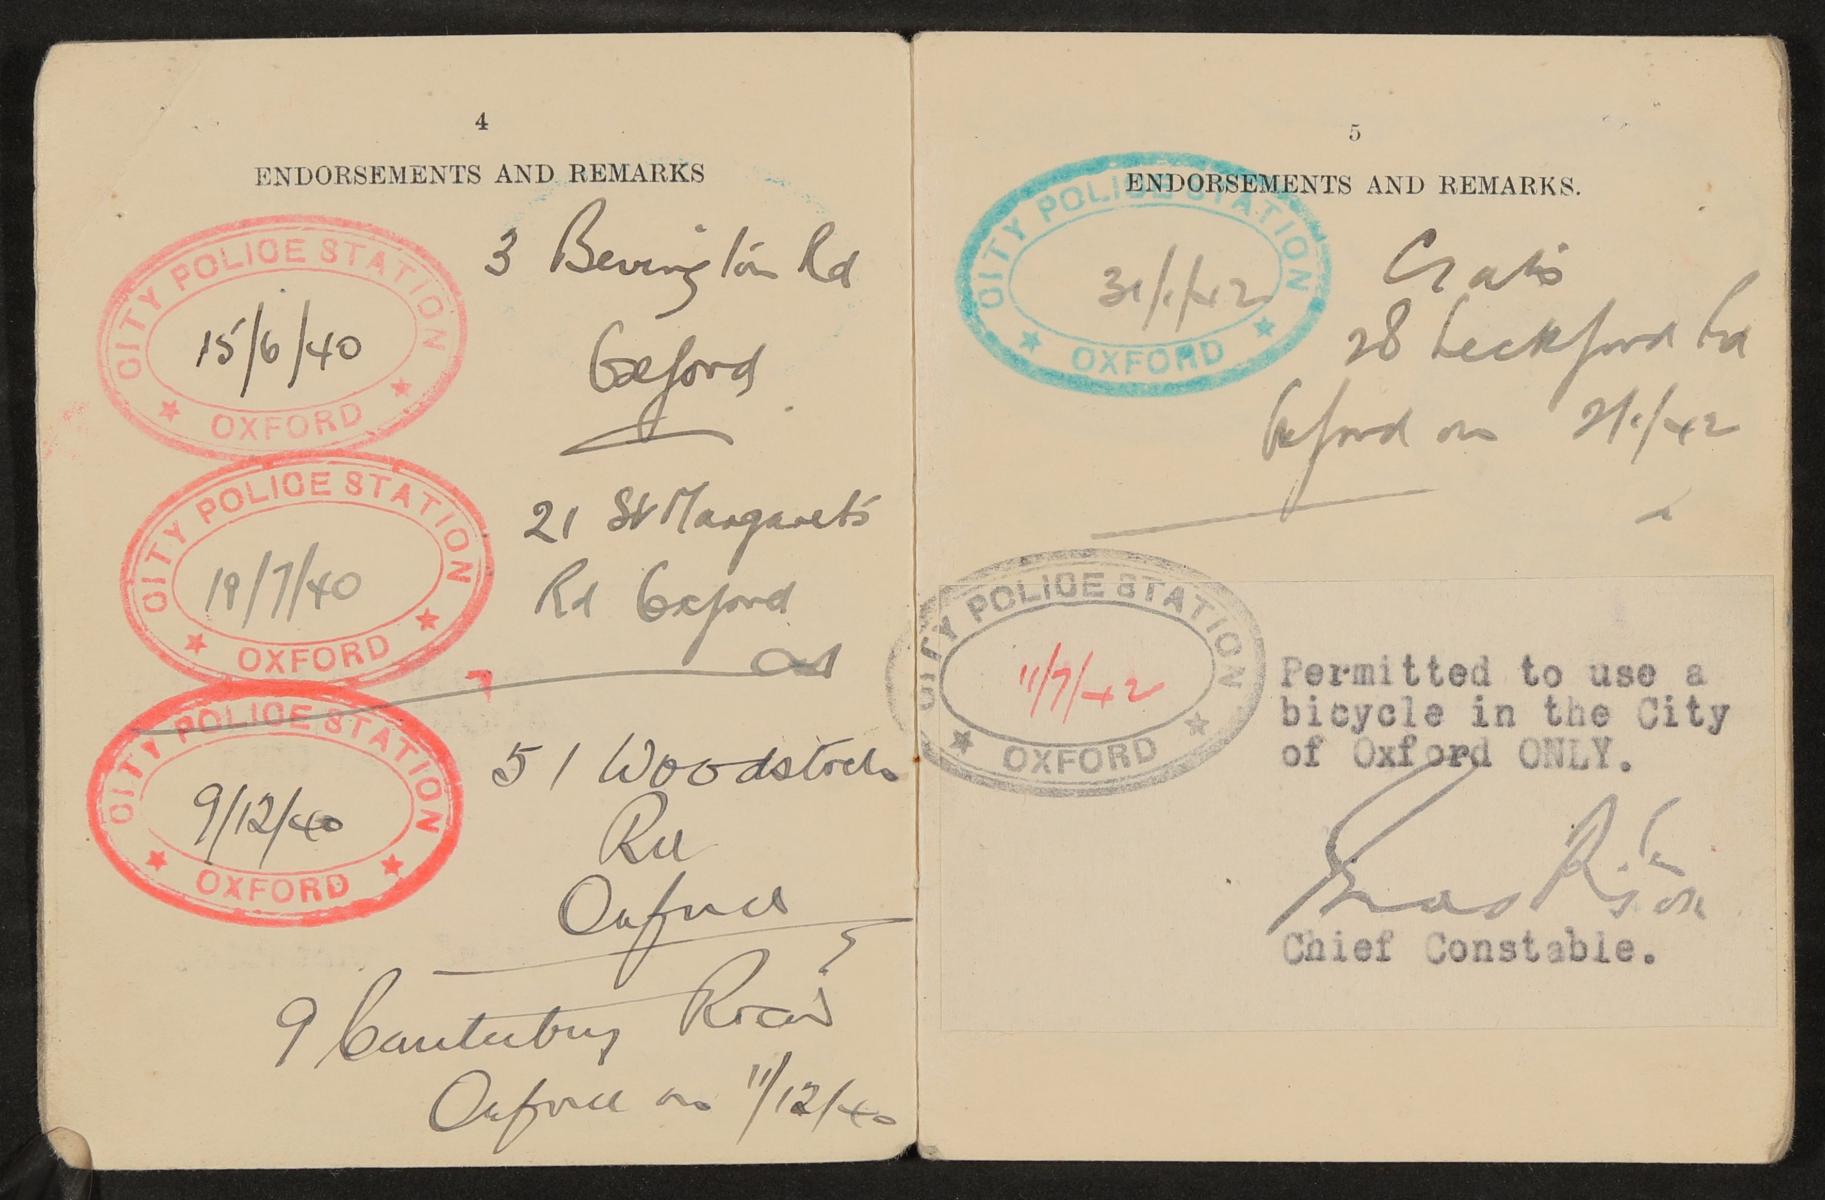 4
ENDORSEMENTS AND REMARKS
CITY POLICE STATION
15/6/40
OXFORD
3 Bevington Rd
Oxford
CITY POLICE STATION
18/7/40
OXFORD
21 St Margaret's
Rd Oxford
CITY POLICE STATION
9/12/40
OXFORD
51 Woodstock
Rd
Oxford
9 Canterbury Road
Oxford on 11/12/40
5
ENDORSEMENTS AND REMARKS.
CITY POLICE STATION
31/1/42
OXFORD
28 Leckford Rd
Oxford on
CITY POLICE STATION
11/7/42
OXFORD
Permitted to use a
bicycle in the City
of Oxford ONLY.
Chief Constable.